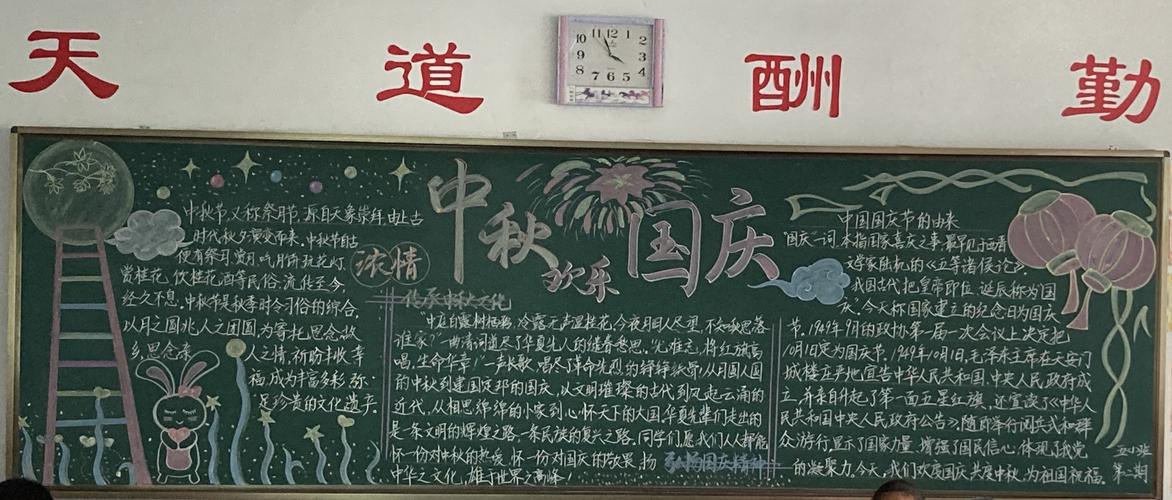 天 道 酬 勤
11 12 1
10 2
9 3
8 4
7 6 5
浓情
中秋
欢乐
国庆
中秋节,又称祭月节,源自天象崇拜,由上古
时代秋夕演变而来.中秋节自古
便有祭月、赏月、吃月饼、玩花灯、
赏桂花、饮桂花酒等民俗,流传至今,
经久不息.中秋节是秋季时令习俗的综合,
以月之圆兆人之团圆,为寄托思念故
乡,思念亲
人之情,祈盼丰收、幸
福,成为丰富多彩、弥
足珍贵的文化遗产.
传承中秋文化
"中庭白露树栖鸦,冷露无声湿桂花,今夜月明人尽望,不知秋思落
谁家?"一曲清词道尽了华夏先人的缱绻愁思."先难立,将红旗高
唱,生命华章!"一声长歌,唱尽了革命先烈的铮铮铁骨.从月圆人圆
的中秋到建国定邦的国庆,以文明璀璨的古代到风起云涌的
近代,从相思绵绵的小家到心怀天下的大国,华夏先辈们走出的
是一条文明的辉煌之路,一条民族的复兴之路.同学们愿我们人人都能
怀一份对中秋的热爱,怀一份对国庆的敬畏,扬
中华之文化,雄于世界之高峰!
弘扬国庆精神
中国国庆节的由来
"国庆"一词,本指国家喜庆之事,最早见于西晋
文学家陆机的《五等诸侯论》.
我国古代把皇帝即位、诞辰称为"国
庆".今天称国家建立的纪念日为国庆
节.1949年9月的政协第一届一次会议上决定把
10月1日定为国庆节.1949年10月1日,毛泽东主席在天安门
城楼庄严地宣告中华人民共和国、中央人民政府成
立,并亲自升起了第一面五星红旗,还宣读了《中华人
民共和国中央人民政府公告》随即举行阅兵式和群
众游行,显示了国家力量,增强了国民信心,体现了政党
的凝聚力.今天,我们欢度国庆,共度中秋,为祖国祝福.
五(1)班
第二期